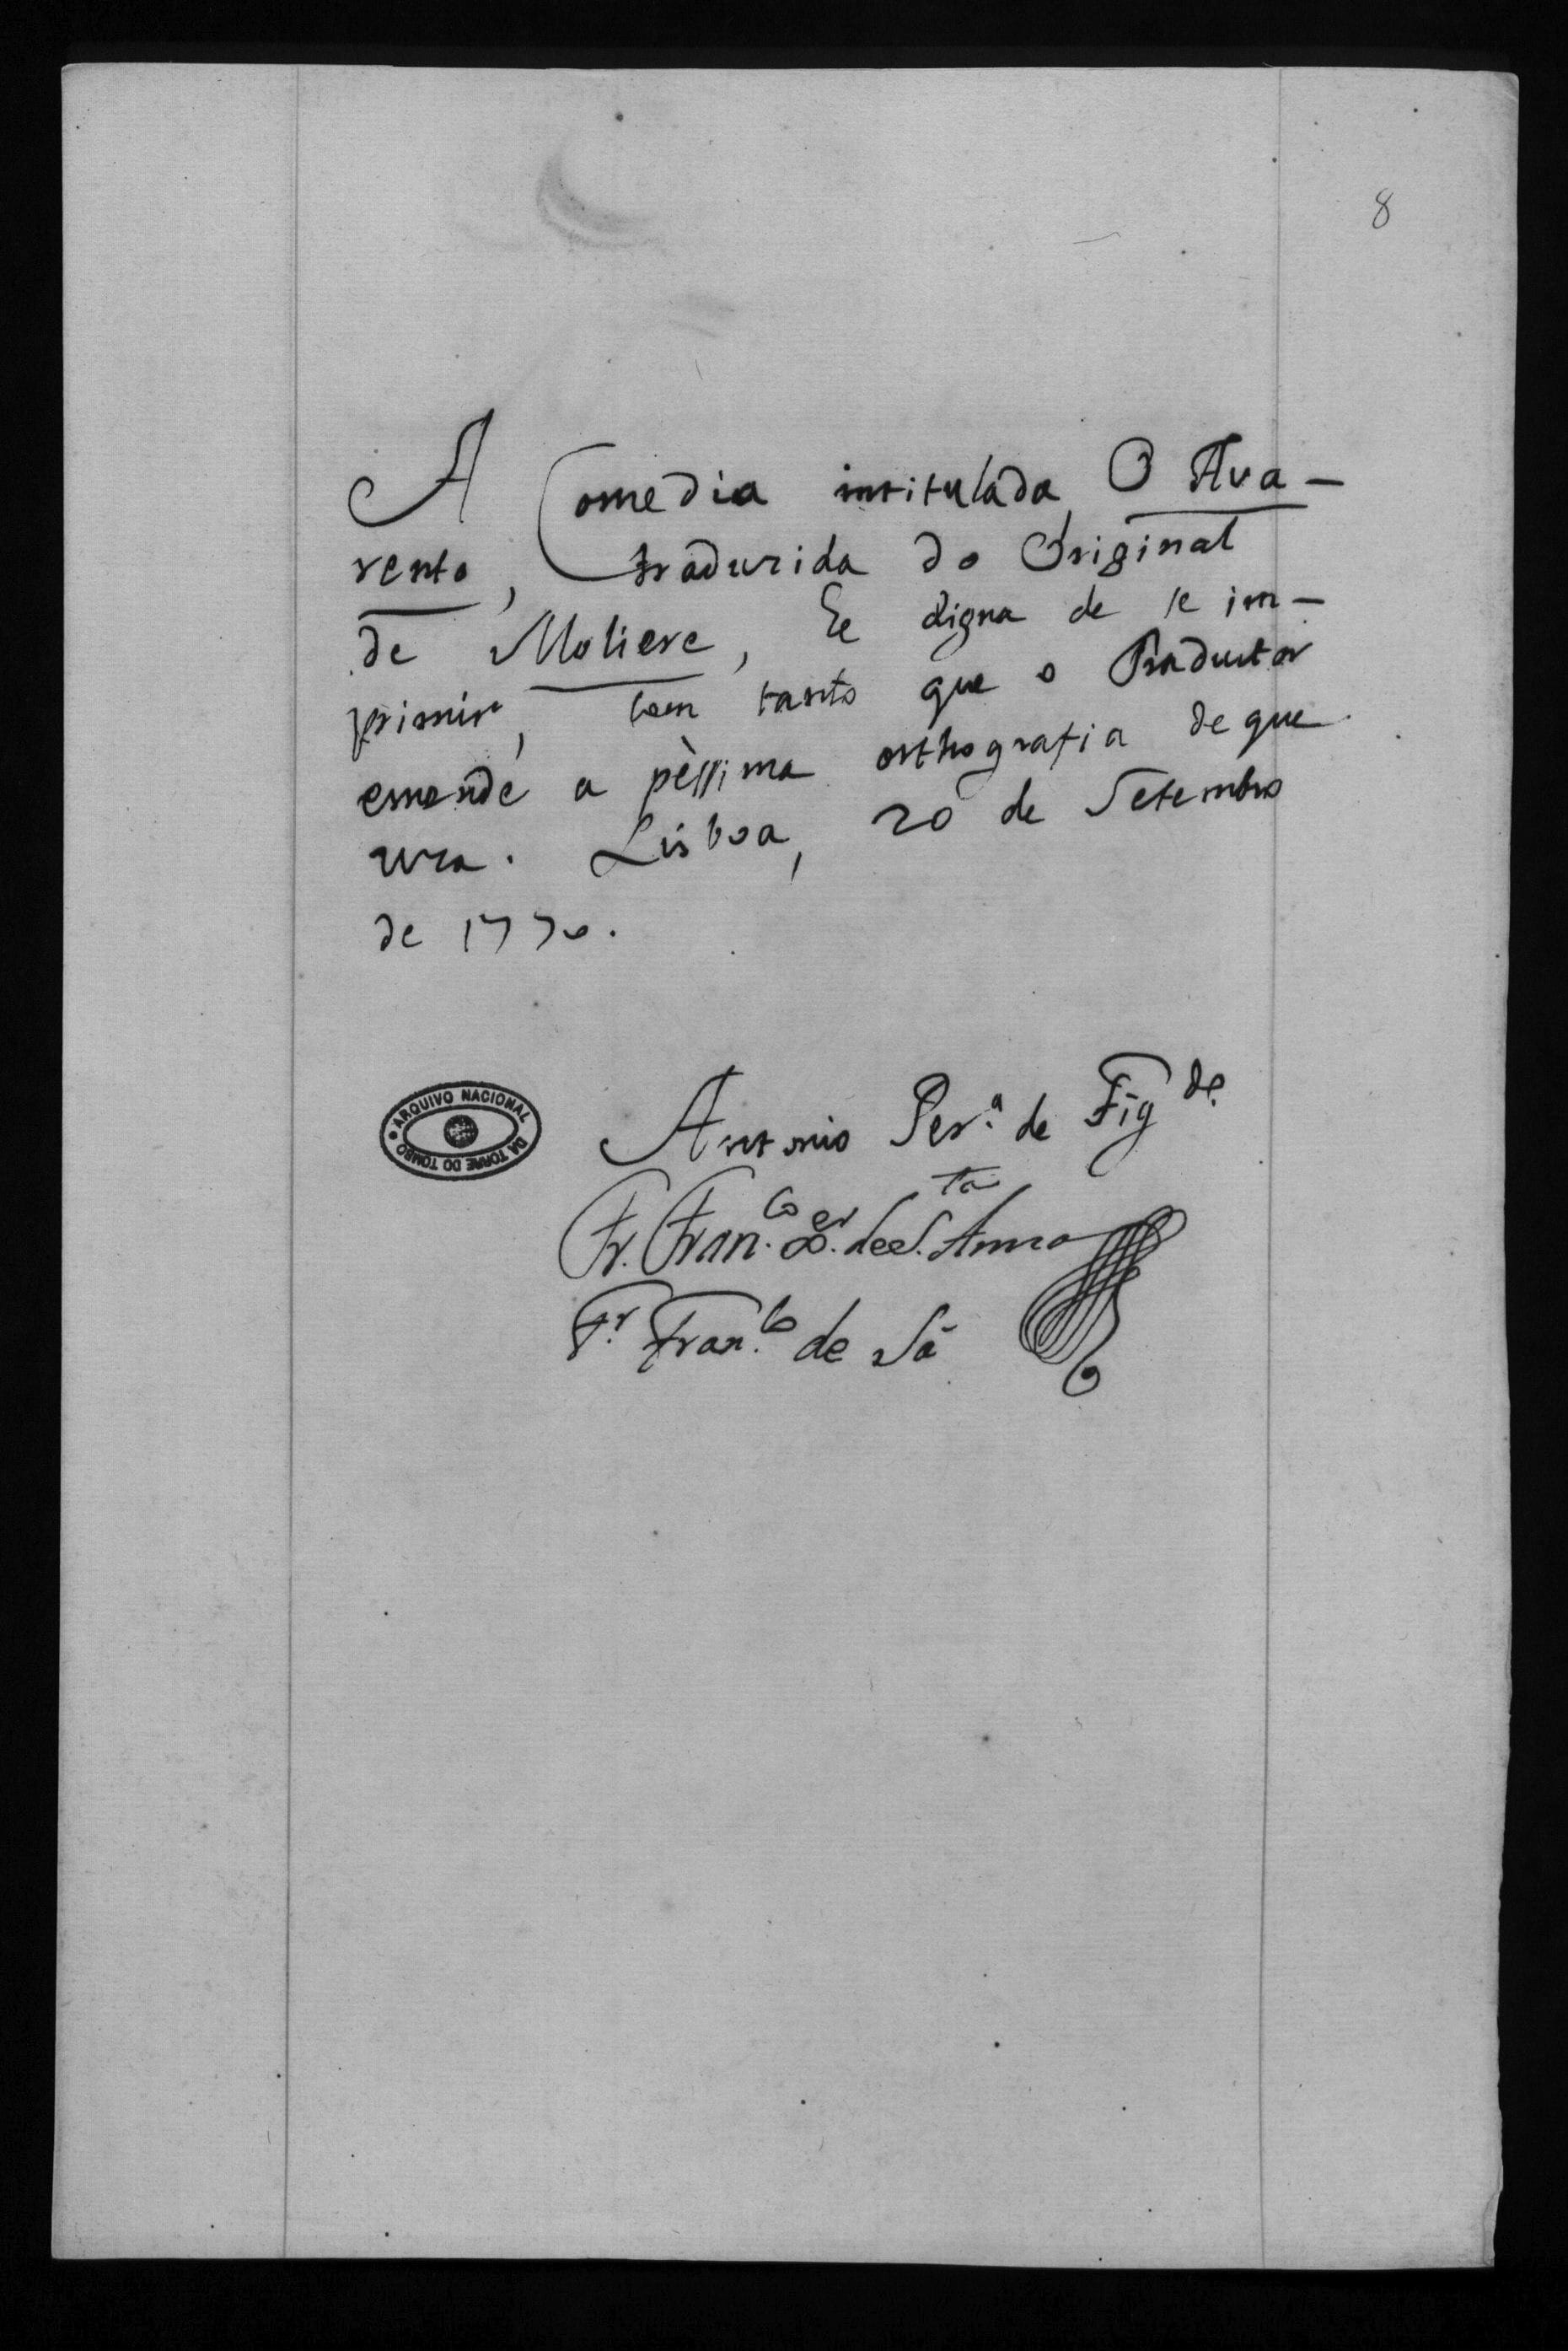 8
A Comedia intitulada O Ava-
rento, traduzida do Original
de Moliere, he digna de se im-
primir, com tanto que o Traductor
emende a pèssima orthografia de que
uza. Lisboa, 20 de Setembro
de 1770.
Antonio Per.ª de Fig.do
Fr. Fran.co X.er de S.ta Anna
Fr. Fran.co de Sá
ARQUIVO NACIONAL DA TORRE DO TOMBO